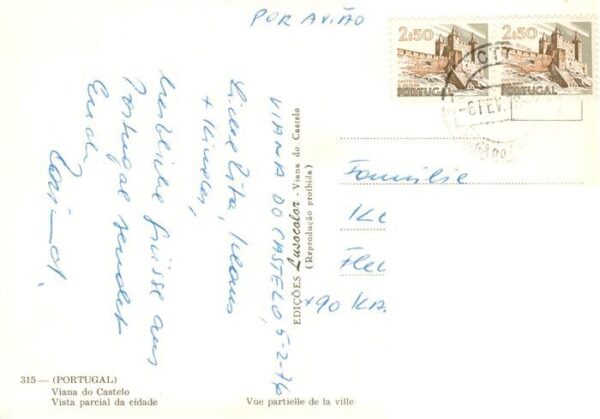 POR AVIÃO
2$50
CASTELO DA FEIRA
PORTUGAL
2$50
PORTUGAL
CTT
-6 FEV.
VIANA DO CASTELO, 5-2-76
Liebe Rita, Klaus
+ Kinder,
herzliche Grüsse aus
Portugal sendet
Euch
EDIÇÕES Lusocolor - Viana do Castelo
(Reprodução proibida)
Familie
315 — (PORTUGAL)
Viana do Castelo
Vista parcial da cidade
Vue partielle de la ville